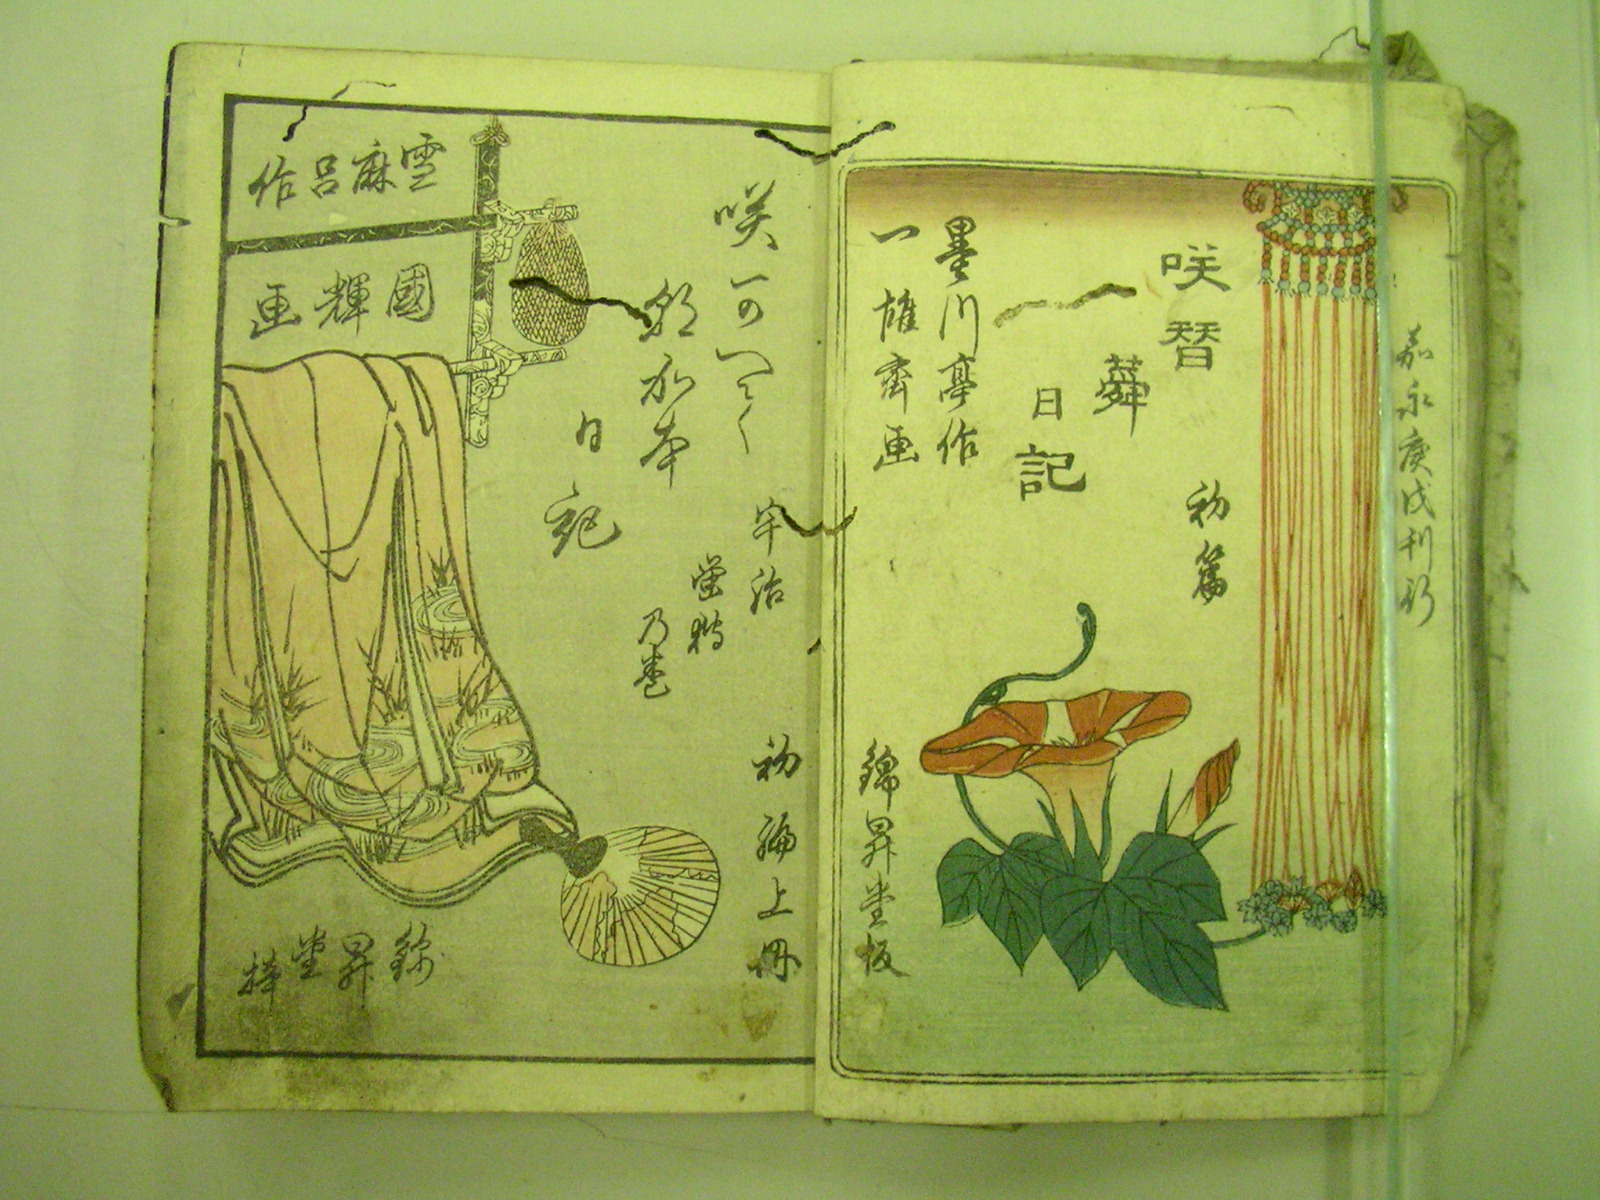 嘉永庚戌刊行
咲替蕣日記
初篇
墨川亭作
一雄齋画
錦昇堂板
咲かへく
朝かほ
日記
宇治
蛍狩
乃巻
初編上冊
雪麻呂作
國輝画
錦昇堂梓